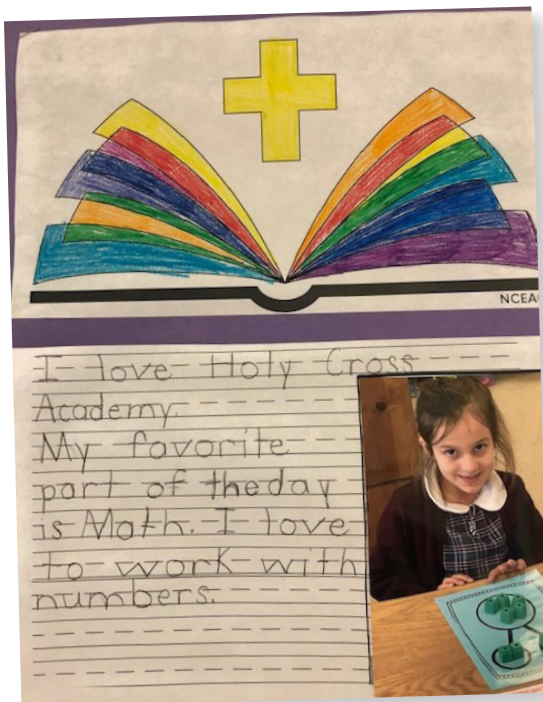 NCEA
I love Holy Cross
Academy.
My favorite
part of the day
is Math. I love
to work with
numbers.